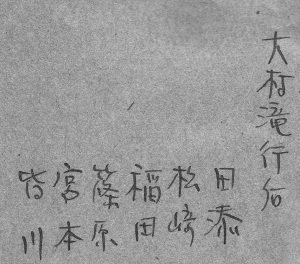 大村滝行
田添
松崎
稲田
篠原
宮本
皆川